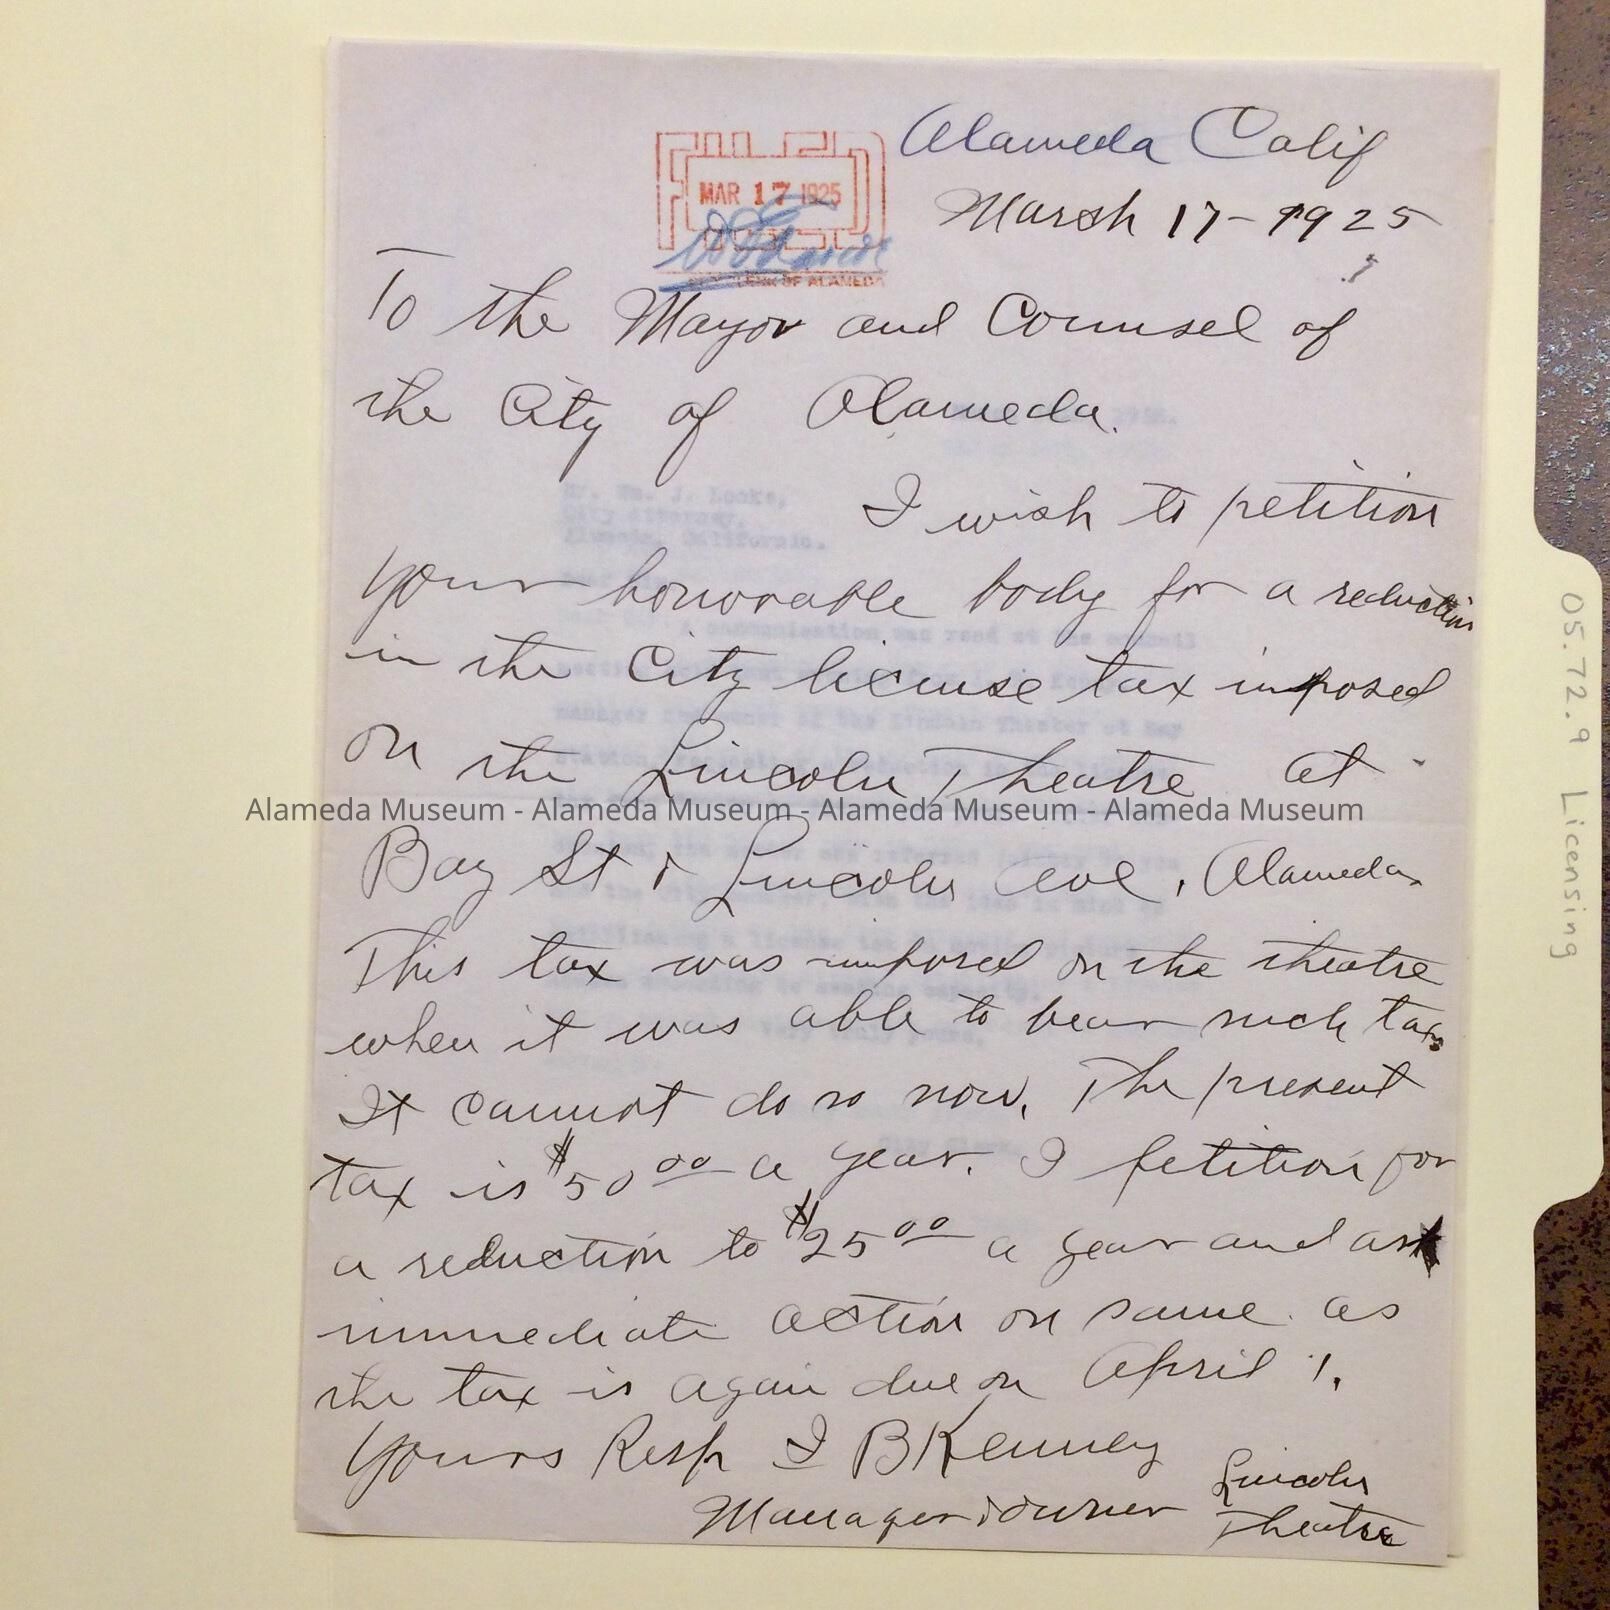 Alameda Calif
March 17-1925
FILED
MAR 17 1925
CITY CLERK OF ALAMEDA
To the Mayor and Counsel of
the City of Alameda.
I wish to petition
your honorable body for a reduction
in the City license tax imposed
on the Lincoln Theatre at
Alameda Museum - Alameda Museum - Alameda Museum - Alameda Museum
Bay St & Lincoln Ave, Alameda.
This tax was imposed on the theatre
when it was able to bear such tax.
It cannot do so now. The present
tax is $50 00 a year. I petition for
a reduction to $25 00 a year and ask
immediate action on same as
the tax is again due on April 1.
Yours Resp I B Kenney
Manager & owner Lincoln
Theatre
05.72.9 Licensing
Mr. Wm. J. Locke,
City Attorney,
Alameda, California.